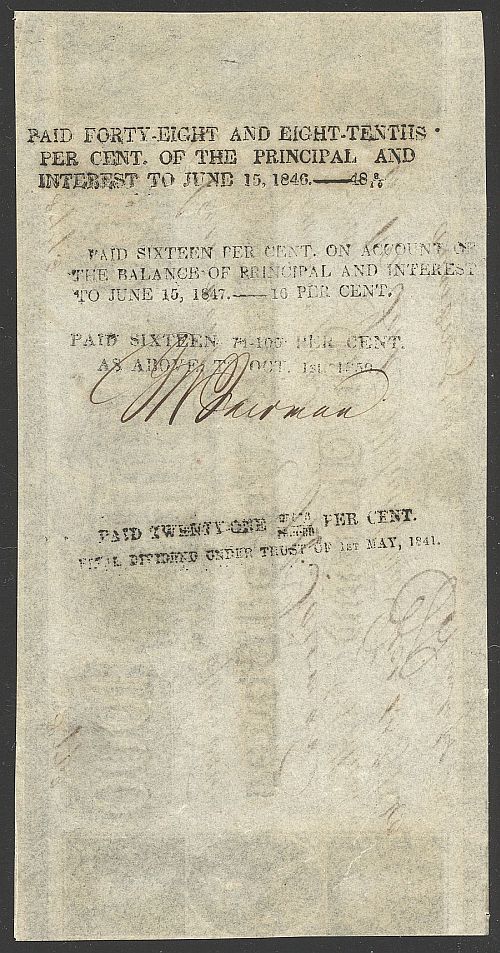 PAID FORTY-EIGHT AND EIGHT-TENTHS
PER CENT. OF THE PRINCIPAL AND
INTEREST TO JUNE 15, 1846.——48 8/10
PAID SIXTEEN PER CENT. ON ACCOUNT OF
THE BALANCE OF PRINCIPAL AND INTEREST
TO JUNE 15, 1847.——16 PER CENT.
PAID SIXTEEN 71-100 PER CENT.
AS ABOVE TO OCT. 1st 1850
PAID TWENTY-ONE PER CENT.
FINAL DIVIDEND UNDER TRUST OF 1ST MAY, 1841.